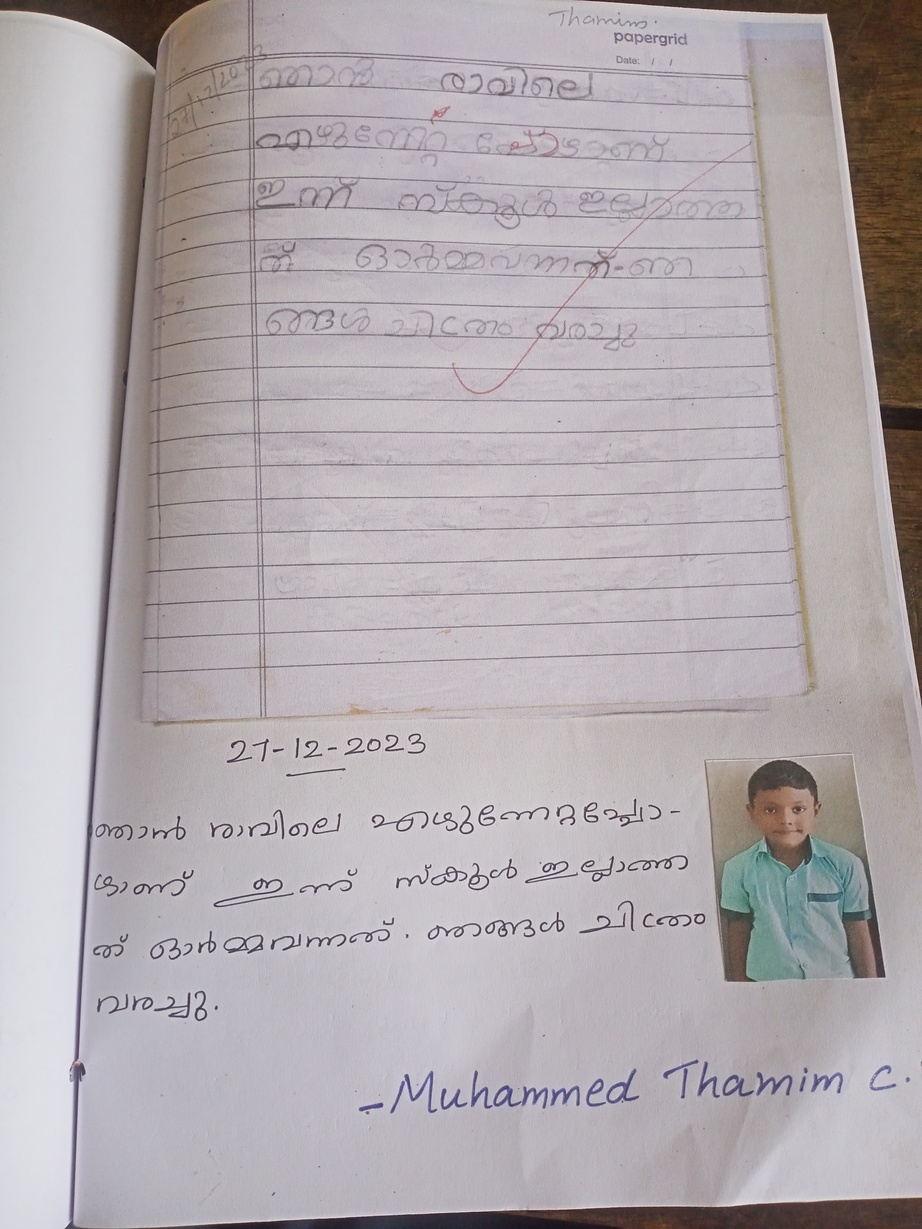 Thamim.
papergrid
Date: / /
27/12/2023
ഞാൻ രാവിലെ
എഴുന്നേറ്റ പ്പോഴാണ്
ഇന്ന് സ്കൂൾ ഇല്ലാത്ത
ത് ഓർമ്മവന്നത്-ഞ
ങ്ങൾ ചിത്രം വരച്ചു
27-12-2023
ഞാൻ രാവിലെ എഴുന്നേറ്റപ്പോ-
ഴാണ് ഇന്ന് സ്കൂൾ ഇല്ലാത്ത
ത് ഓർമ്മവന്നത്. ഞങ്ങൾ ചിത്രം
വരച്ചു.
-Muhammed Thamim C.